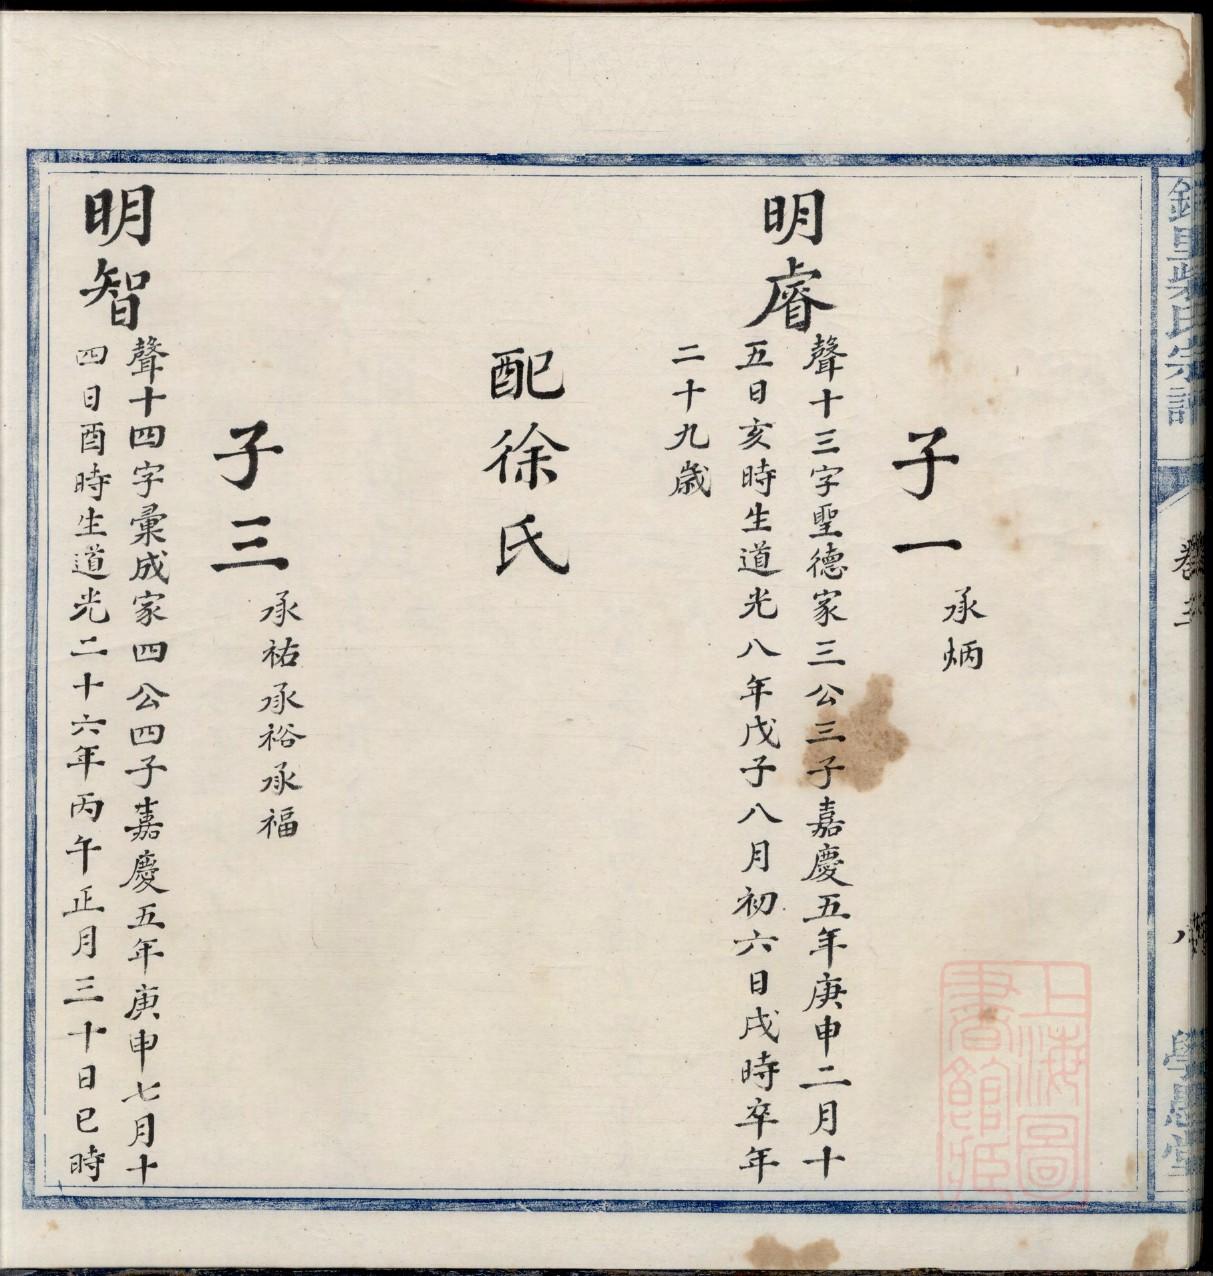 氏宗譜
子一
承炳
明睿
聲十三字聖德家三公三子嘉慶五年庚申二月十
五日亥時生道光八年戊子八月初六日戌時卒年
二十九歲
配徐氏
子三
承祐承裕承福
明智
聲十四字彙成家四公四子嘉慶五年庚申七月十
四日酉時生道光二十六年丙午正月三十日巳時
上海圖
書館藏